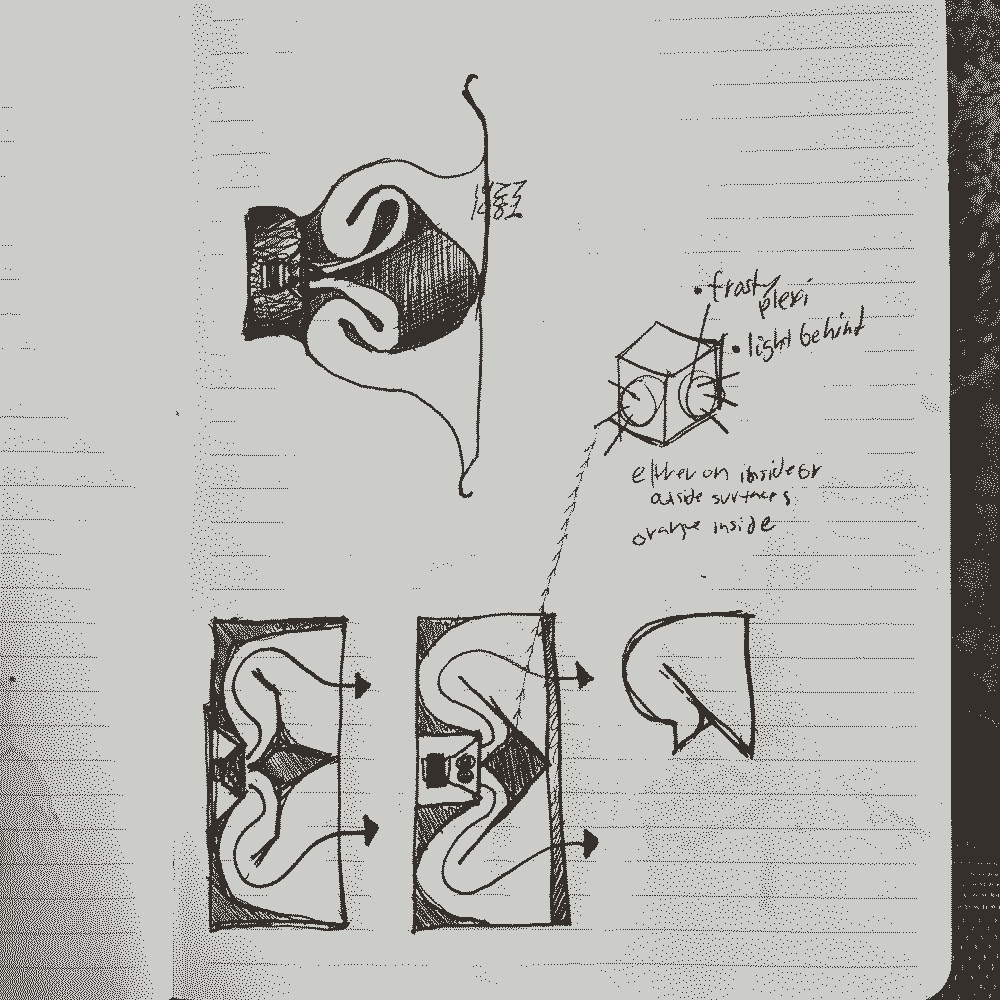 • frosty
plexi
• light behind
either on inside or
outside surfaces
orange inside